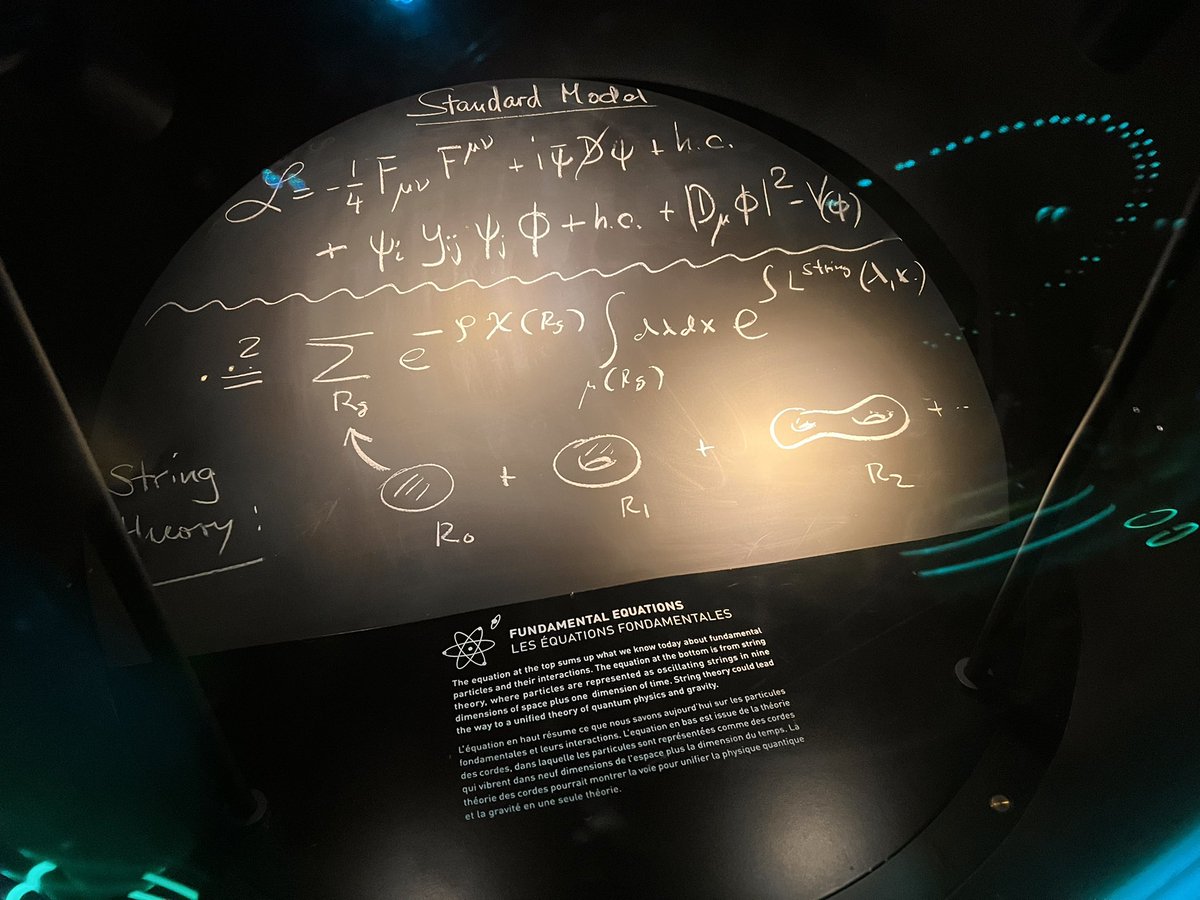 Standard Model
ℒ = -1/4 F_μν F^μν + i ψ̄ D̸ ψ + h.c.
+ ψ_i y_ij ψ_j ϕ + h.c. + |D_μ ϕ|² - V(ϕ)
∫ L^string (λ, x.)
2 Σ e^{-φ χ(R_g)} ∫ dλdx e
R_g μ(R_g)
+ + + ..
String R_2
theory: R_0 R_1
FUNDAMENTAL EQUATIONS
LES ÉQUATIONS FONDAMENTALES
The equation at the top sums up what we know today about fundamental
particles and their interactions. The equation at the bottom is from string
theory, where particles are represented as oscillating strings in nine
dimensions of space plus one dimension of time. String theory could lead
the way to a unified theory of quantum physics and gravity.
L'équation en haut résume ce que nous savons aujourd'hui sur les particules
fondamentales et leurs interactions. L'equation en bas est issue de la théorie
des cordes, dans laquelle les particules sont représentées comme des cordes
qui vibrent dans neuf dimensions de l'espace plus la dimension du temps. La
théorie des cordes pourrait montrer la voie pour unifier la physique quantique
et la gravité en une seule théorie.